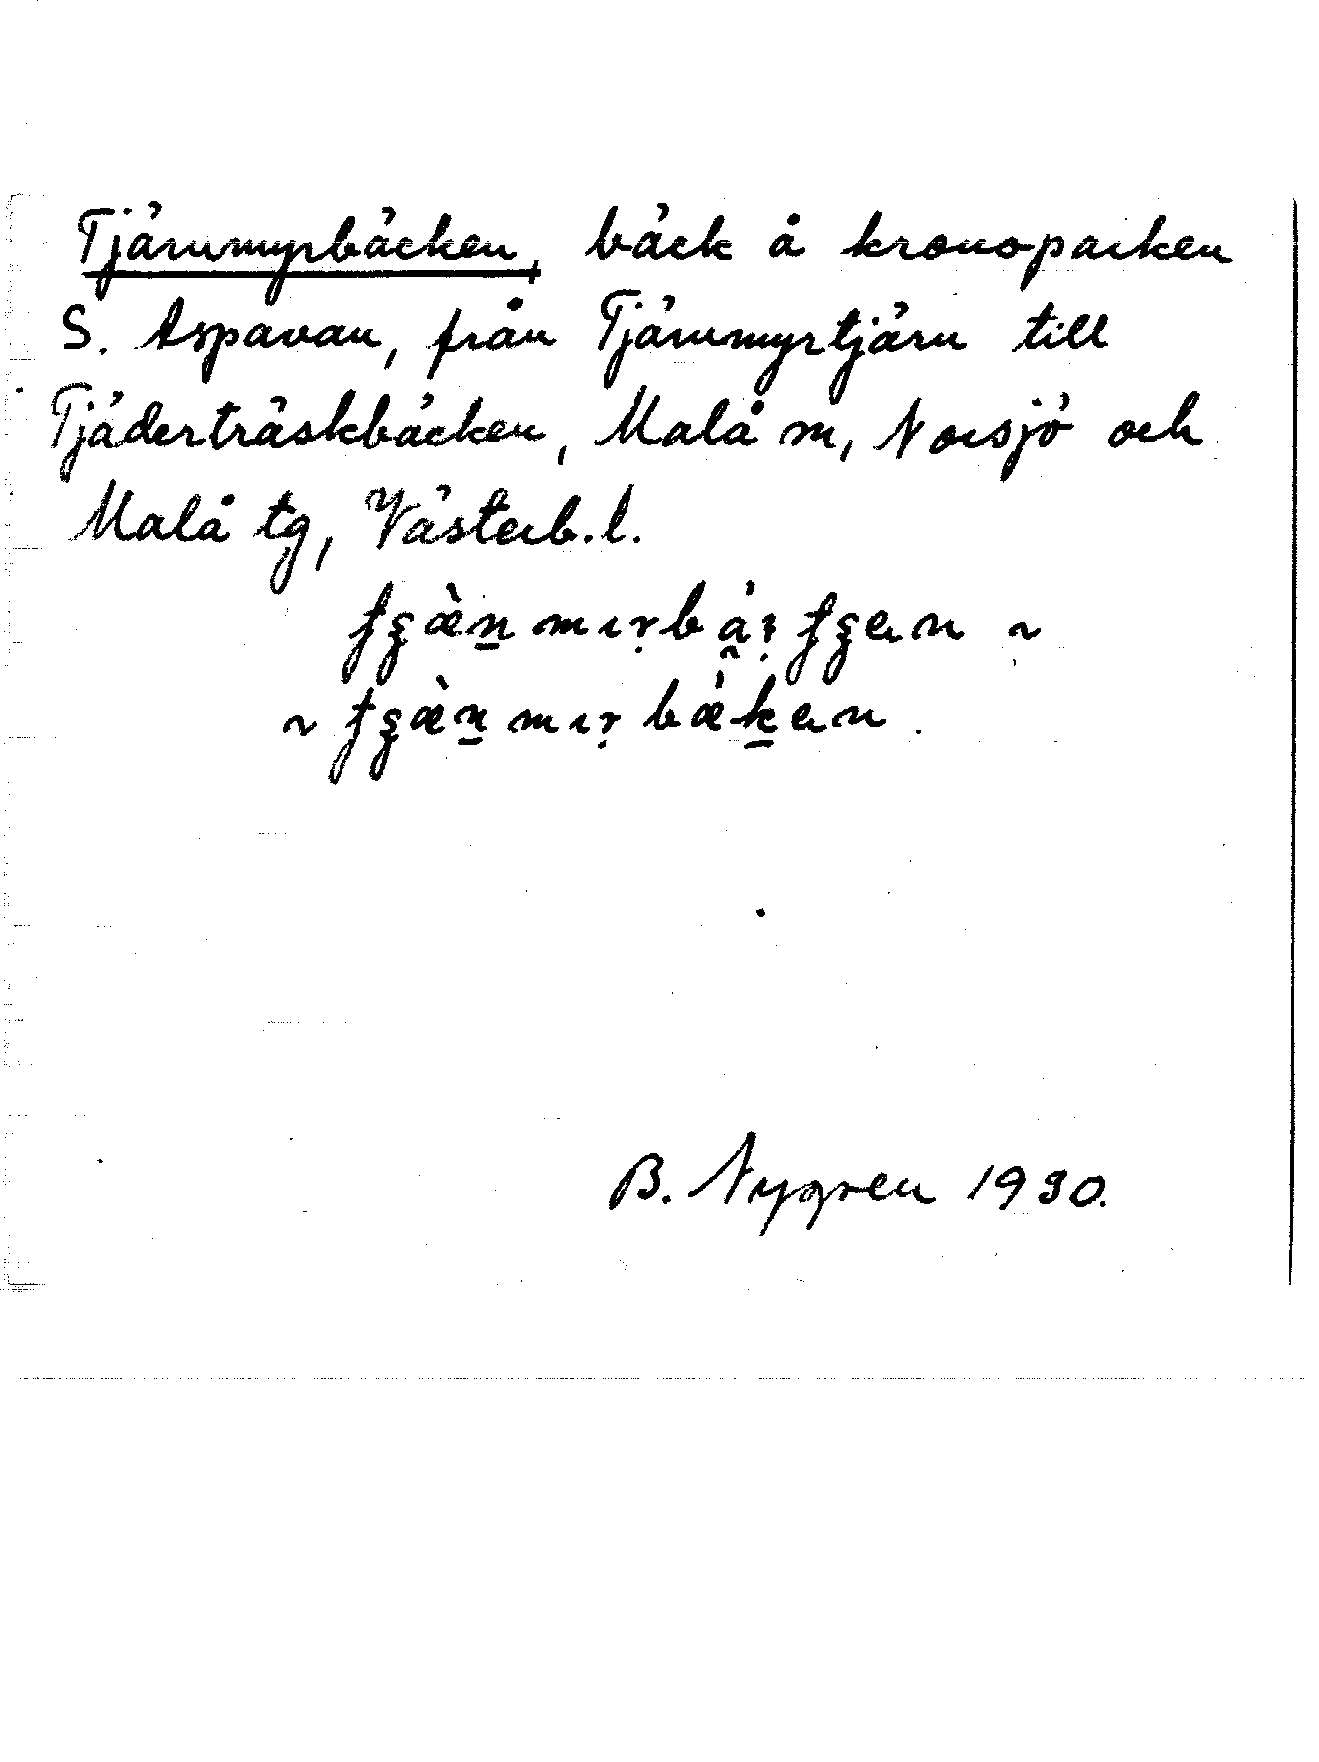 Tjärnmyrbäcken, bäck å kronoparken
S. Aspavan, från Tjärnmyrtjärn till
Tjäderträskbäcken, Malå sn, Norsjö och
Malå tg, Västerb.l.
~
~
B. Nygren 1930.